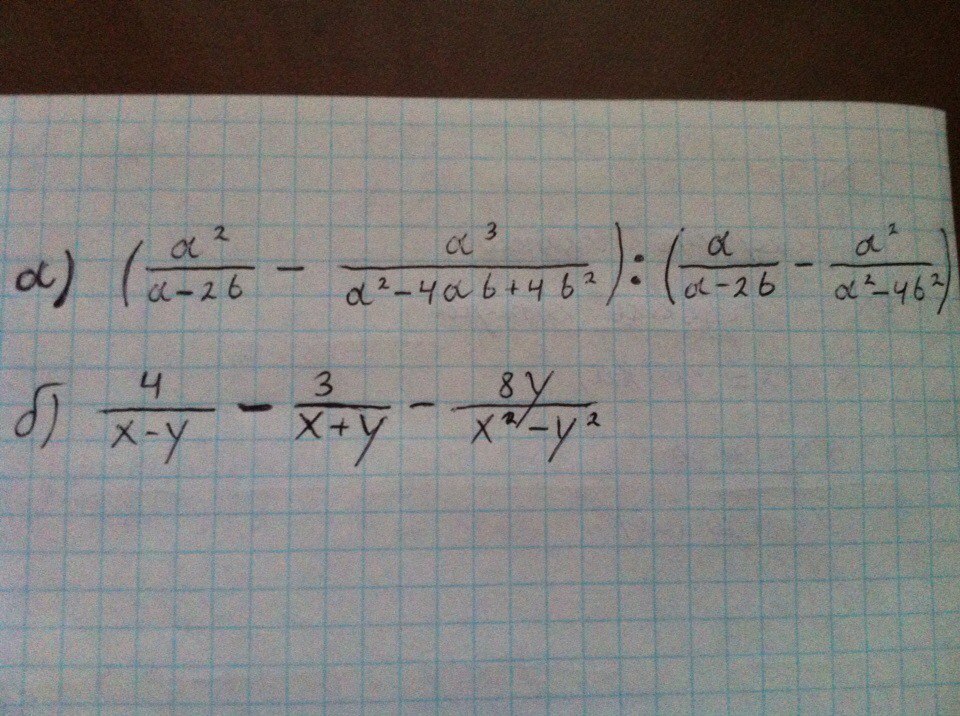 а) (a²/(a-2b) - a³/(a²-4ab+4b²)) : (a/(a-2b) - a²/(a²-4b²))
б) 4/(x-y) - 3/(x+y) - 8y/(x²-y²)